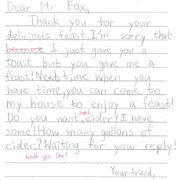 Dear Mr Fox,
Thank you for your
delicious feast. I'm sorry that
because I just gave you a
toast but you gave me a
feast! Next time when you
have time, you can come to
my house to enjoy a feast!
Do you want some cider? I have
some! How many gallons of
cider? Waiting for your reply!
would you like?
Your friend,